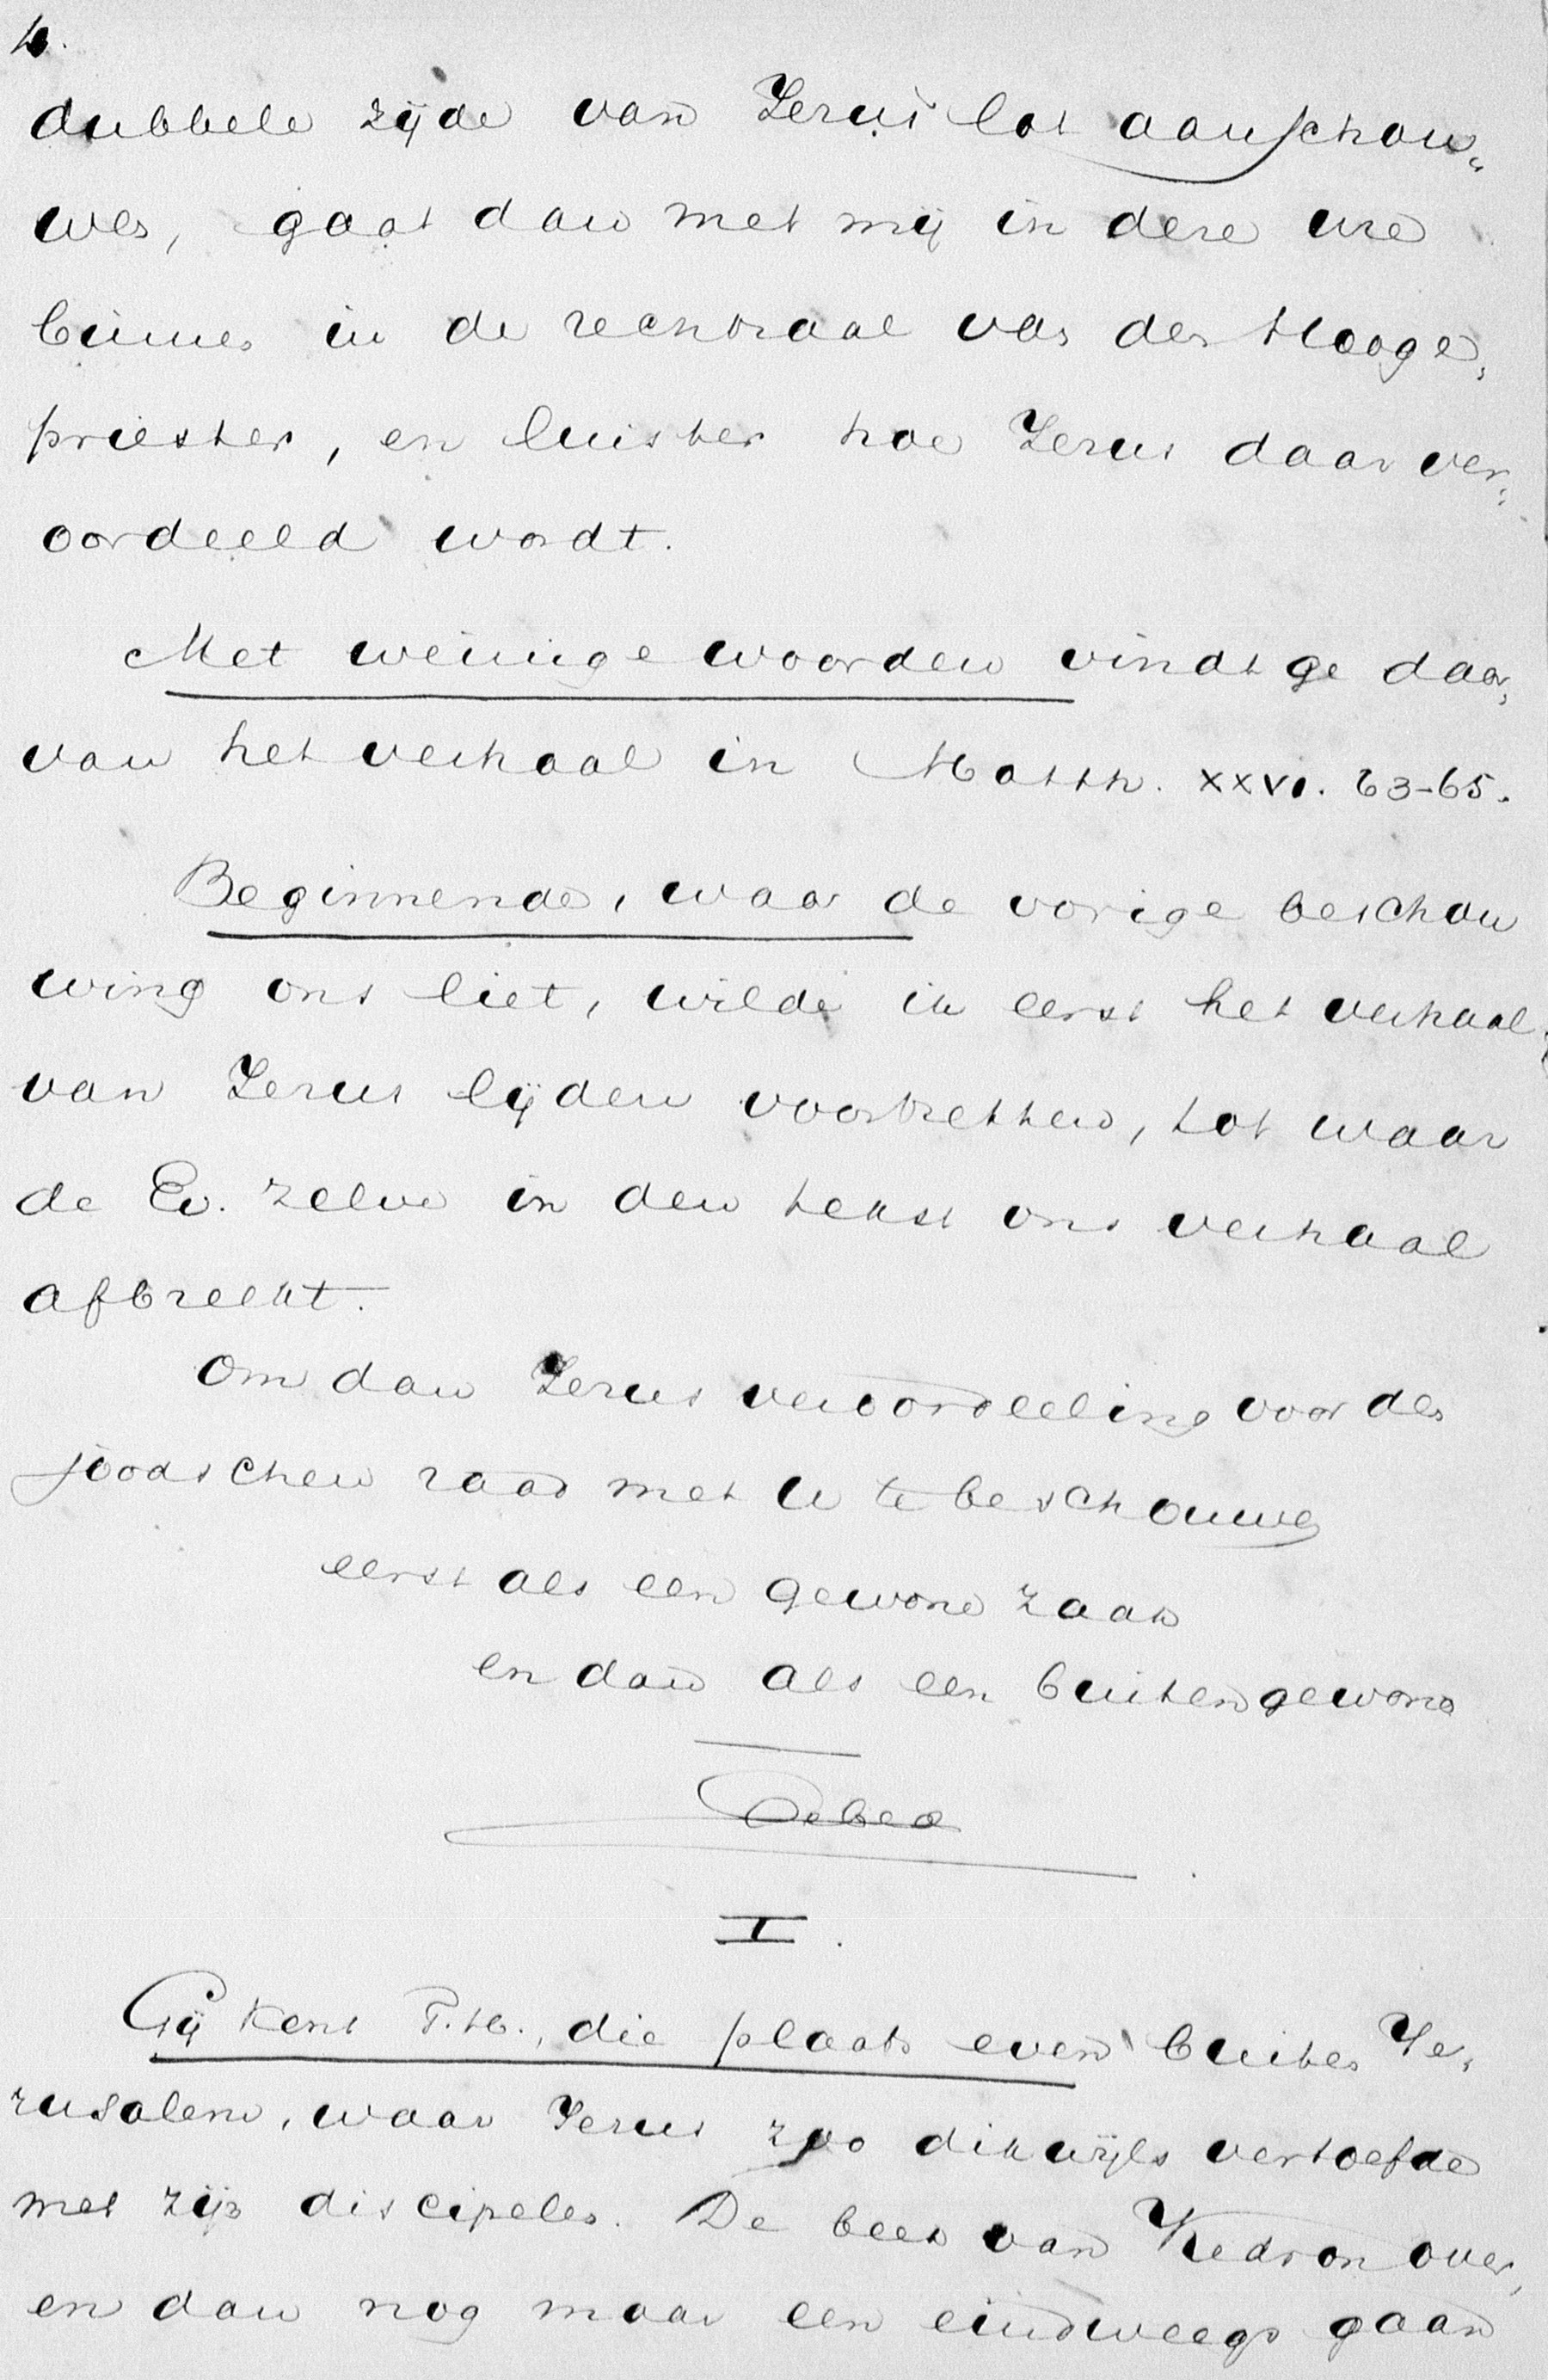 4.
dubbele zijde van Jezus lot aanschou„
wen, gaat dan met mij in deze ure
binnen in de rechtzaal van den Hooge„
priester, en luister hoe Jezus daar ver„
oordeeld wordt.
Met weinige woorden vindt ge daar„
van het verhaal in Matth. XXVI. 63-65.
Beginnende, waar de vorige beschou
wing ons liet, wilde ik eerst het verhaal
van Jezus lijden voortzetten, tot waar
de Ev. zelve in den tekst ons verhaal
afbreekt.
Om dan Jezus veroordeeling voor den
joodschen raad met U te beschouwen
eerst als een gewone zaak
en dan als een buitengewone
Gebed
I.
Gij kent T.H., die plaats even buiten Je„
ruzalem, waar Jezus zoo dikwijls vertoefde
met zijn discipelen. De beek van Kedron over,
en dan nog maar een eindweegs gaan